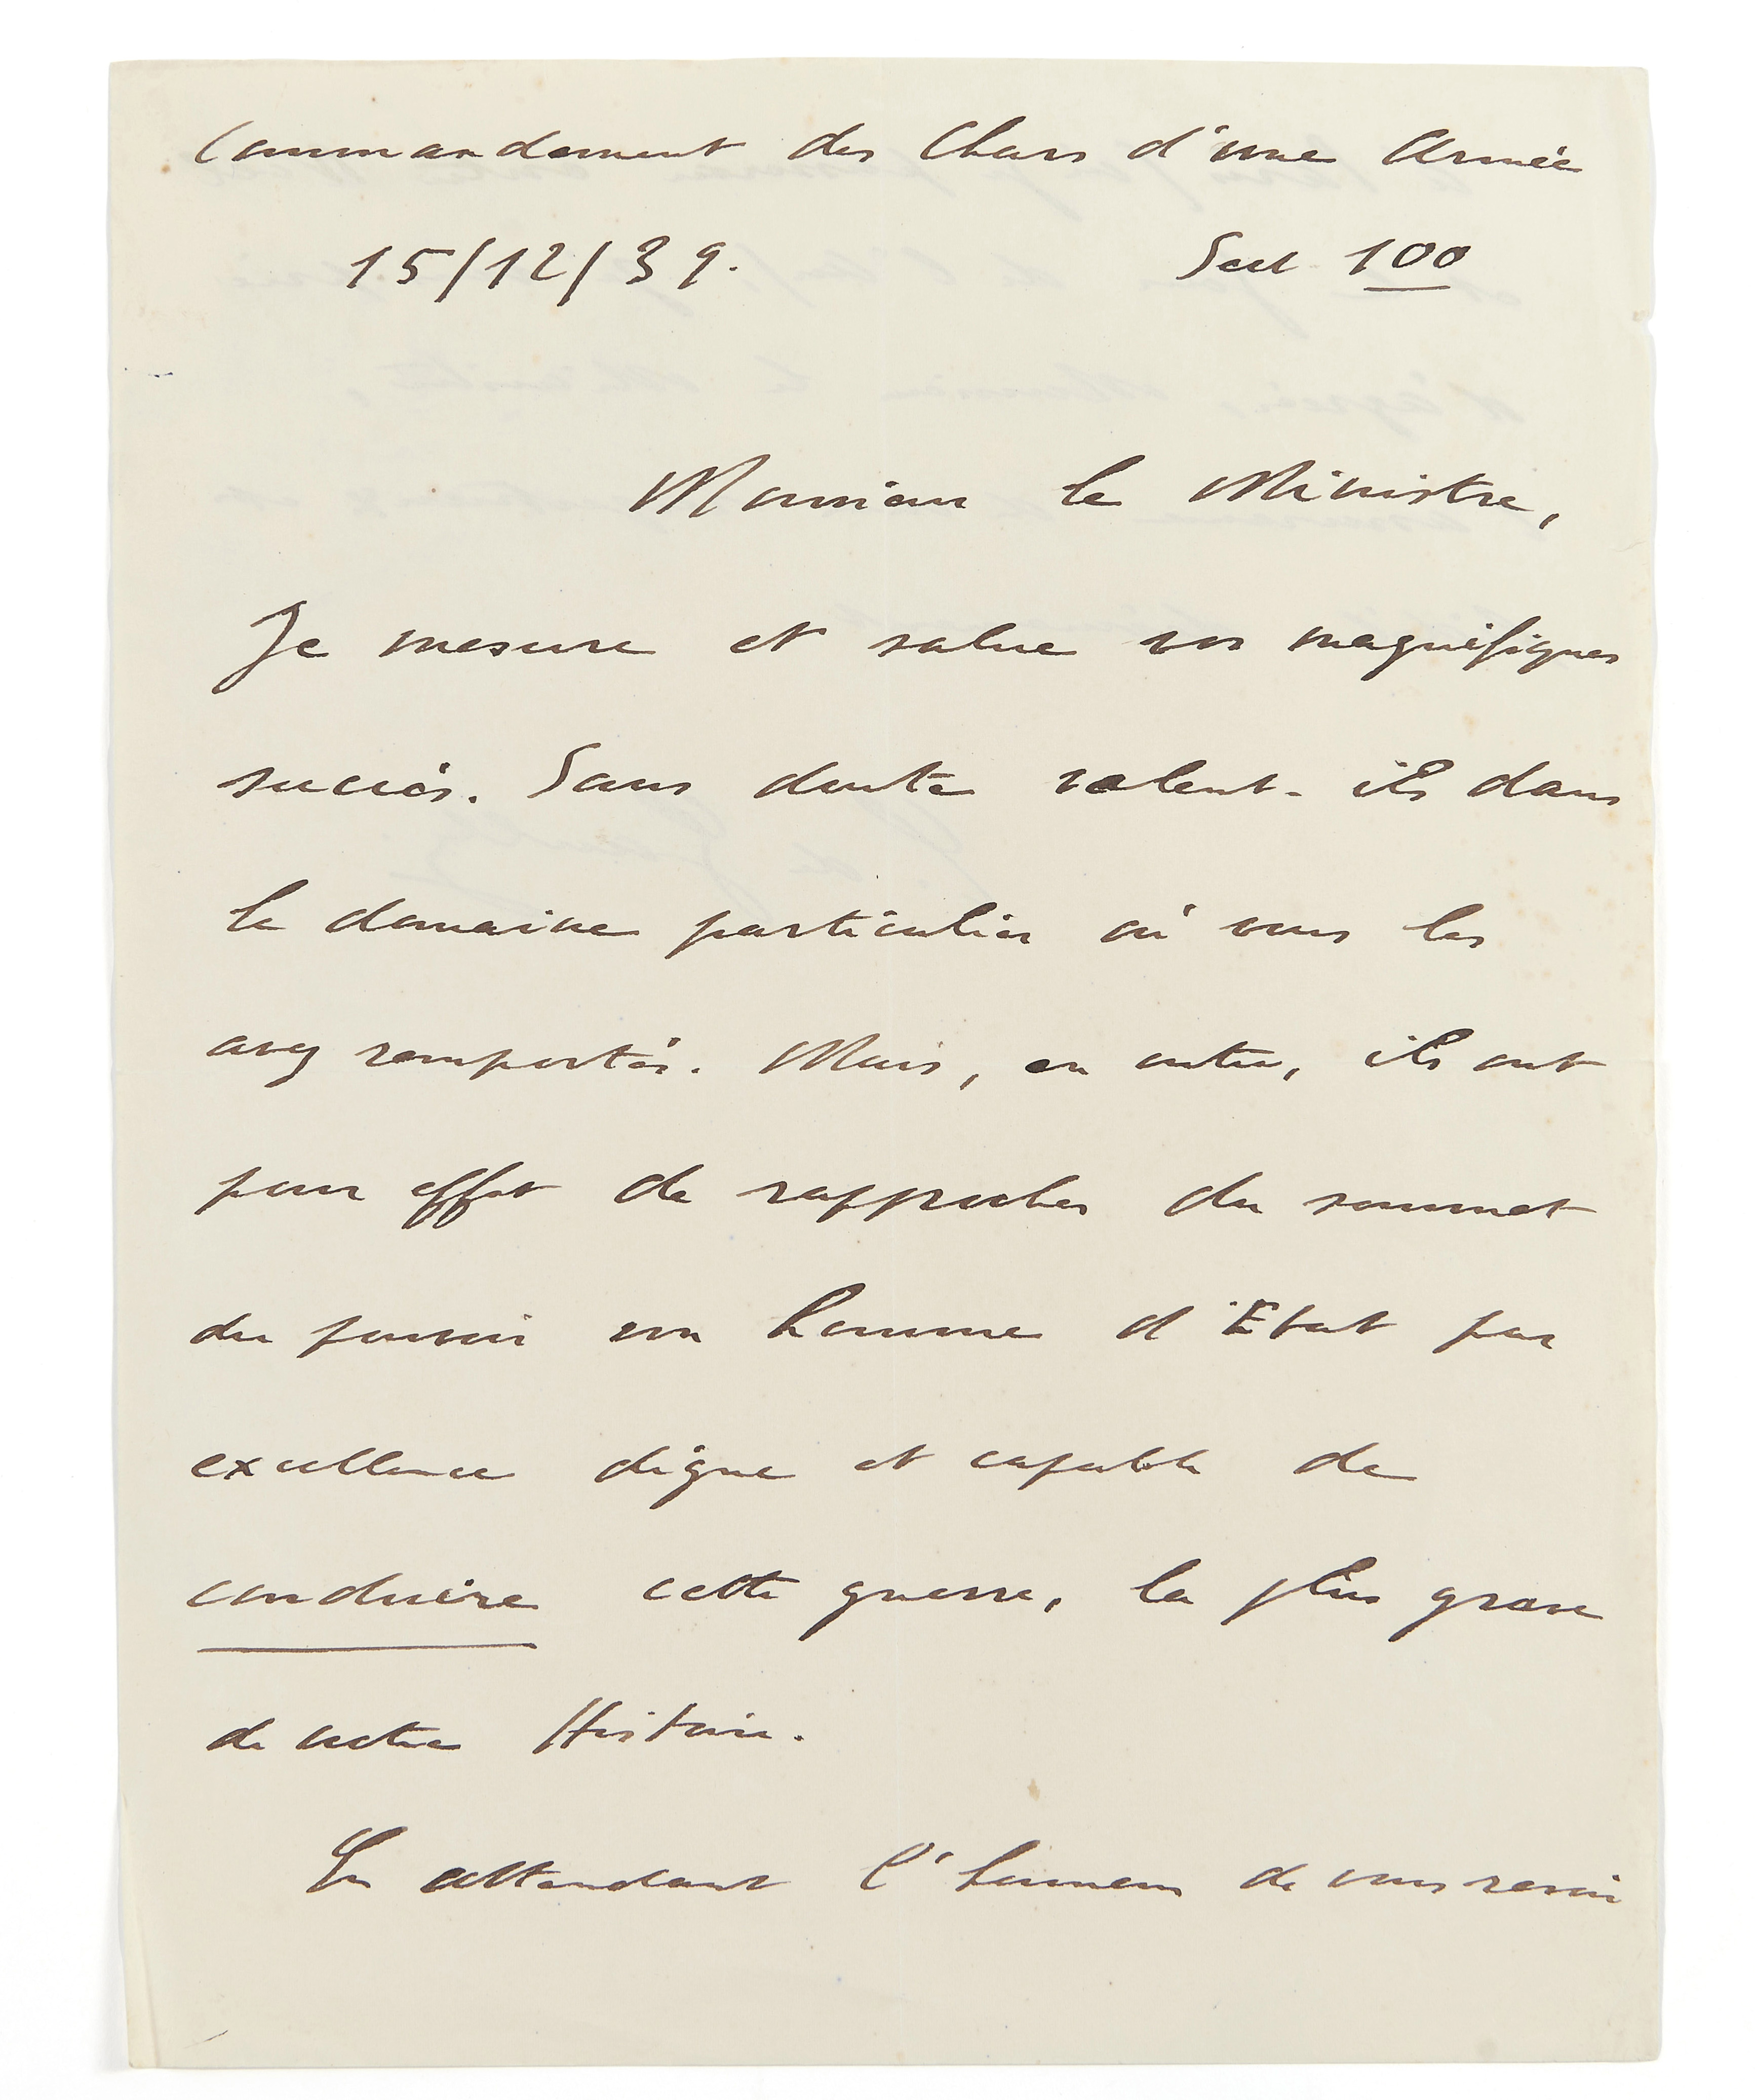 Commandement des Chars d'une Armée
15/12/39. Sect 100
Monsieur le Ministre,
Je mesure et salue vos magnifiques
succès. Sans doute valent-ils dans
le domaine particulier où vous les
avez remportés. Mais, en outre, ils ont
pour effet de rapprocher du sommet
du pouvoir un homme d'Etat par
excellence digne et capable de
conduire cette guerre, la plus grave
de notre Histoire.
En attendant l'honneur de vous revoir